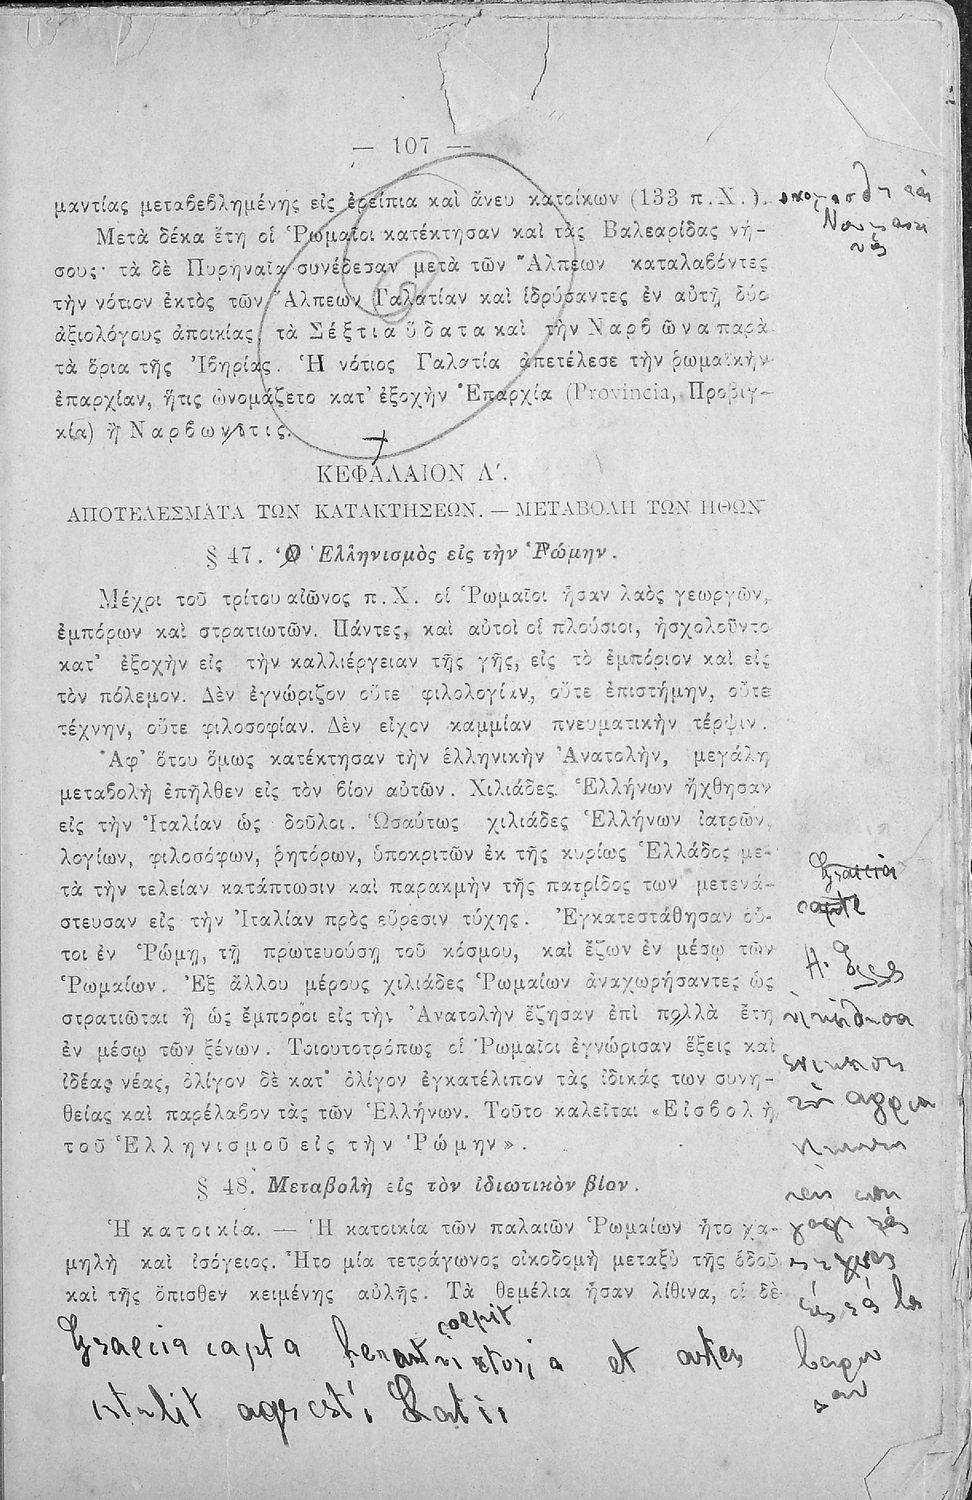 — 107 —
μαντίας μεταβεβλημένης εἰς ἐρείπια καὶ ἄνευ κατοίκων (133 π.Χ.).
Μετὰ δέκα ἔτη οἱ Ῥωμαῖοι κατέκτησαν καὶ τὰς Βαλεαρίδας νή-
σους· τὰ δὲ Πυρηναῖα συνέδεσαν μετὰ τῶν Ἄλπεων καταλαβόντες
τὴν νότιον ἐκτὸς τῶν Ἄλπεων Γαλατίαν καὶ ἱδρύσαντες ἐν αὐτῇ δύο
ἀξιολόγους ἀποικίας, τὰ Σέξτια ὕδατα καὶ τὴν Ναρβῶνα παρὰ
τὰ ὅρια τῆς Ἰβηρίας. Ἡ νότιος Γαλατία ἀπετέλεσε τὴν ῥωμαϊκὴν
ἐπαρχίαν, ἥτις ὠνομάζετο κατ' ἐξοχὴν Ἐπαρχία (Provincia, Προβιγ-
κία) ἢ Ναρβωνῖτις.
ΚΕΦΑΛΑΙΟΝ Λ'.
ΑΠΟΤΕΛΕΣΜΑΤΑ ΤΩΝ ΚΑΤΑΚΤΗΣΕΩΝ. — ΜΕΤΑΒΟΛΗ ΤΩΝ ΗΘΩΝ
§ 47. Ὁ Ἑλληνισμὸς εἰς τὴν Ῥώμην.
Μέχρι τοῦ τρίτου αἰῶνος π.Χ. οἱ Ῥωμαῖοι ἦσαν λαὸς γεωργῶν,
ἐμπόρων καὶ στρατιωτῶν. Πάντες, καὶ αὐτοὶ οἱ πλούσιοι, ἠσχολοῦντο
κατ' ἐξοχὴν εἰς τὴν καλλιέργειαν τῆς γῆς, εἰς τὸ ἐμπόριον καὶ εἰς
τὸν πόλεμον. Δὲν ἐγνώριζον οὔτε φιλολογίαν, οὔτε ἐπιστήμην, οὔτε
τέχνην, οὔτε φιλοσοφίαν. Δὲν εἶχον καμμίαν πνευματικὴν τέρψιν.
Ἀφ' ὅτου ὅμως κατέκτησαν τὴν ἑλληνικὴν Ἀνατολὴν, μεγάλη
μεταβολὴ ἐπῆλθεν εἰς τὸν βίον αὐτῶν. Χιλιάδες Ἑλλήνων ἤχθησαν
εἰς τὴν Ἰταλίαν ὡς δοῦλοι. Ὡσαύτως χιλιάδες Ἑλλήνων ἰατρῶν,
λογίων, φιλοσόφων, ῥητόρων, ὑποκριτῶν ἐκ τῆς κυρίως Ἑλλάδος με-
τὰ τὴν τελείαν κατάπτωσιν καὶ παρακμὴν τῆς πατρίδος των μετενά-
στευσαν εἰς τὴν Ἰταλίαν πρὸς εὕρεσιν τύχης. Ἐγκατεστάθησαν οὗ-
τοι ἐν Ῥώμῃ, τῇ πρωτευούσῃ τοῦ κόσμου, καὶ ἔζων ἐν μέσῳ τῶν
Ῥωμαίων. Ἐξ ἄλλου μέρους χιλιάδες Ῥωμαίων ἀναχωρήσαντες ὡς
στρατιῶται ἢ ὡς ἔμποροι εἰς τὴν Ἀνατολὴν ἔζησαν ἐπὶ πολλὰ ἔτη
ἐν μέσῳ τῶν ξένων. Τοιουτοτρόπως οἱ Ῥωμαῖοι ἐγνώρισαν ἕξεις καὶ
ἰδέας νέας, ὀλίγον δὲ κατ' ὀλίγον ἐγκατέλιπον τὰς ἰδικάς των συνη-
θείας καὶ παρέλαβον τὰς τῶν Ἑλλήνων. Τοῦτο καλεῖται «Εἰσβολὴ
τοῦ Ἑλληνισμοῦ εἰς τὴν Ῥώμην».
§ 48. Μεταβολὴ εἰς τὸν ἰδιωτικὸν βίον.
Ἡ κατοικία. — Ἡ κατοικία τῶν παλαιῶν Ῥωμαίων ἦτο χα-
μηλὴ καὶ ἰσόγειος. Ἦτο μία τετράγωνος οἰκοδομὴ μεταξὺ τῆς ὁδοῦ
καὶ τῆς ὄπισθεν κειμένης αὐλῆς. Τὰ θεμέλια ἦσαν λίθινα, οἱ δὲ
Graecia
capta
coepit
Graecia capta et artes
intulit agresti Latii